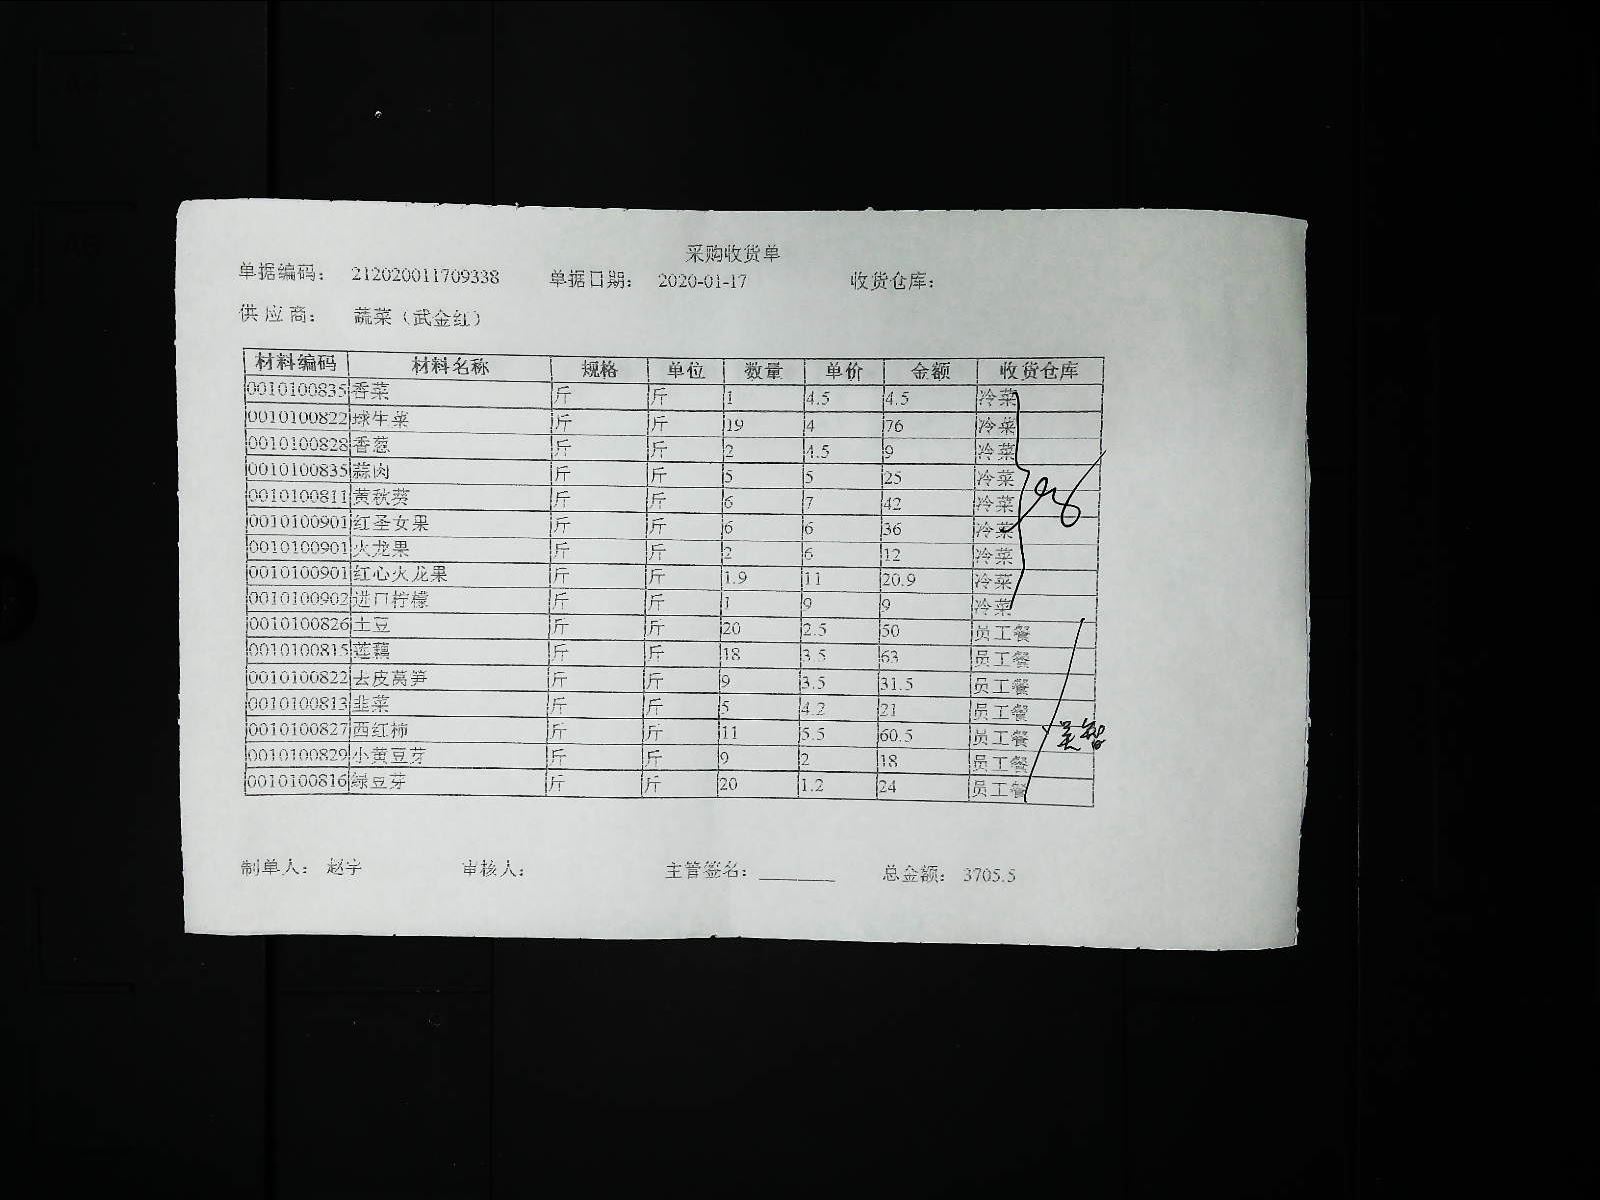 采购收货单
单据编码： 212020011709338 单据日期： 2020-01-17 收货仓库：
供 应 商： 蔬菜（武金红）
材料编码 材料名称 规格 单位 数量 单价 金额 收货仓库
0010100835 香菜 斤 斤 1 4.5 4.5 冷菜
0010100822 球生菜 斤 斤 19 4 76 冷菜
0010100828 香葱 斤 斤 2 4.5 9 冷菜
0010100835 蒜肉 斤 斤 5 5 25 冷菜
0010100811 黄秋葵 斤 斤 6 7 42 冷菜
0010100901 红圣女果 斤 斤 6 6 36 冷菜
0010100901 火龙果 斤 斤 2 6 12 冷菜
0010100901 红心火龙果 斤 斤 1.9 11 20.9 冷菜
0010100902 进口柠檬 斤 斤 1 9 9 冷菜
0010100826 土豆 斤 斤 20 2.5 50 员工餐
0010100815 莲藕 斤 斤 18 3.5 63 员工餐
0010100822 去皮莴笋 斤 斤 9 3.5 31.5 员工餐
0010100813 韭菜 斤 斤 5 4.2 21 员工餐
0010100827 西红柿 斤 斤 11 5.5 60.5 员工餐
0010100829 小黄豆芽 斤 斤 9 2 18 员工餐
0010100816 绿豆芽 斤 斤 20 1.2 24 员工餐
制单人： 赵宇 审核人： 主管签名： 总金额： 3705.5